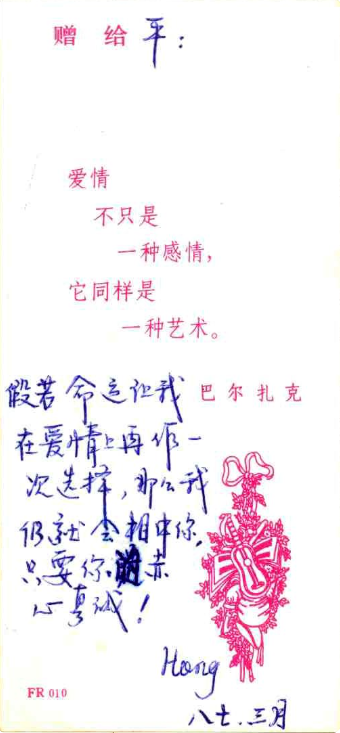 赠给 平：
爱情
不只是
一种感情，
它同样是
一种艺术。
巴尔扎克
假若命运让我
在爱情上再作一
次选择，那么我
仍就会相中你，
只要你赤
心真诚！
Hong
八七.三月
FR 010